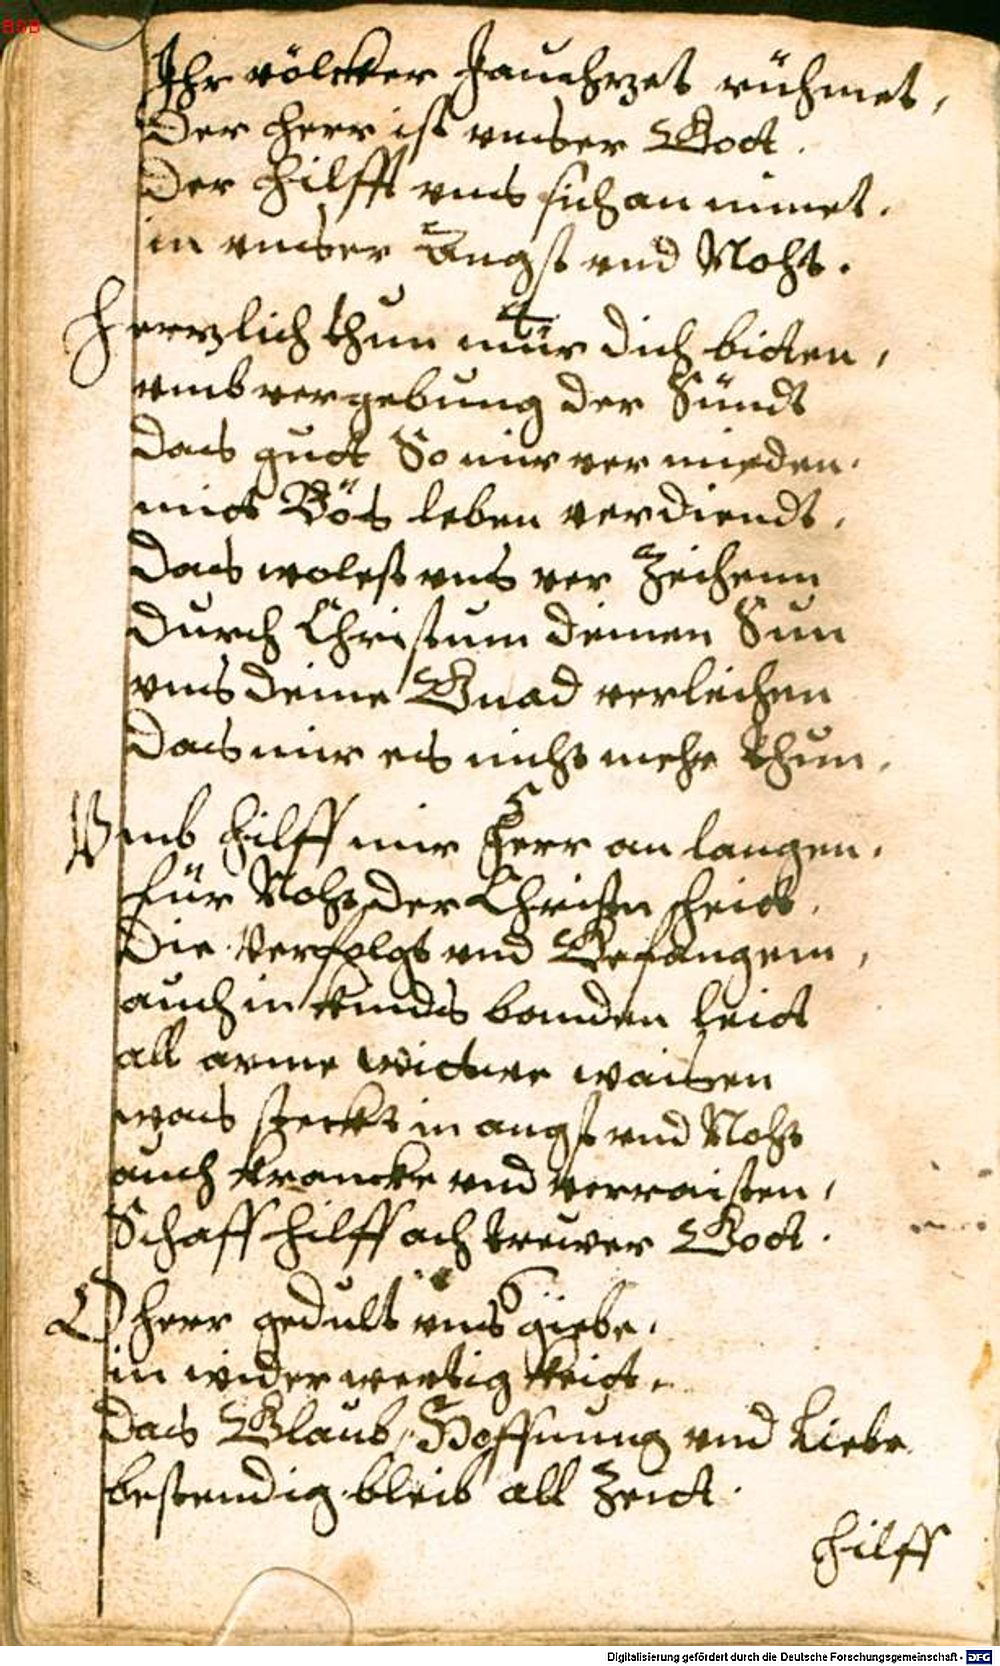 BSB
Ihr völckker Jauchzet rühmet,
Der Herr ist vnser Gott.
Der Hilfft vns sich an nimet.
in vnser angst vnd Noht.
4
Herzlich thun mir dich bitten,
vmb vergebung der Sündt
Das gutt So mir ver mieden.
mit Bös leben verdiendt,
Das wolest vns ver Zeihenn
Durch Christum deinen Sun
vns deine Gnad verleihen
Das mir es nicht mehr thun.
5
Vmb Hilff mir Herr an langen.
für Noht der Christen heit.
Die Verfolgt vnd Gefangenn,
auch in kindts banden leit
all arme wittwe waisen
was steckt in angst vnd Noht
auch krancke vnd verraisten,
Schaff Hilff ach trewer Gott.
6
O Herr gedult vns giebe.
in wider wertig kheit.
Das Glaub, Hoffnung vnd Liebe
bestendig bleib all Zeitt.
Hilff
Digitalisierung gefördert durch die Deutsche Forschungsgemeinschaft - DFG